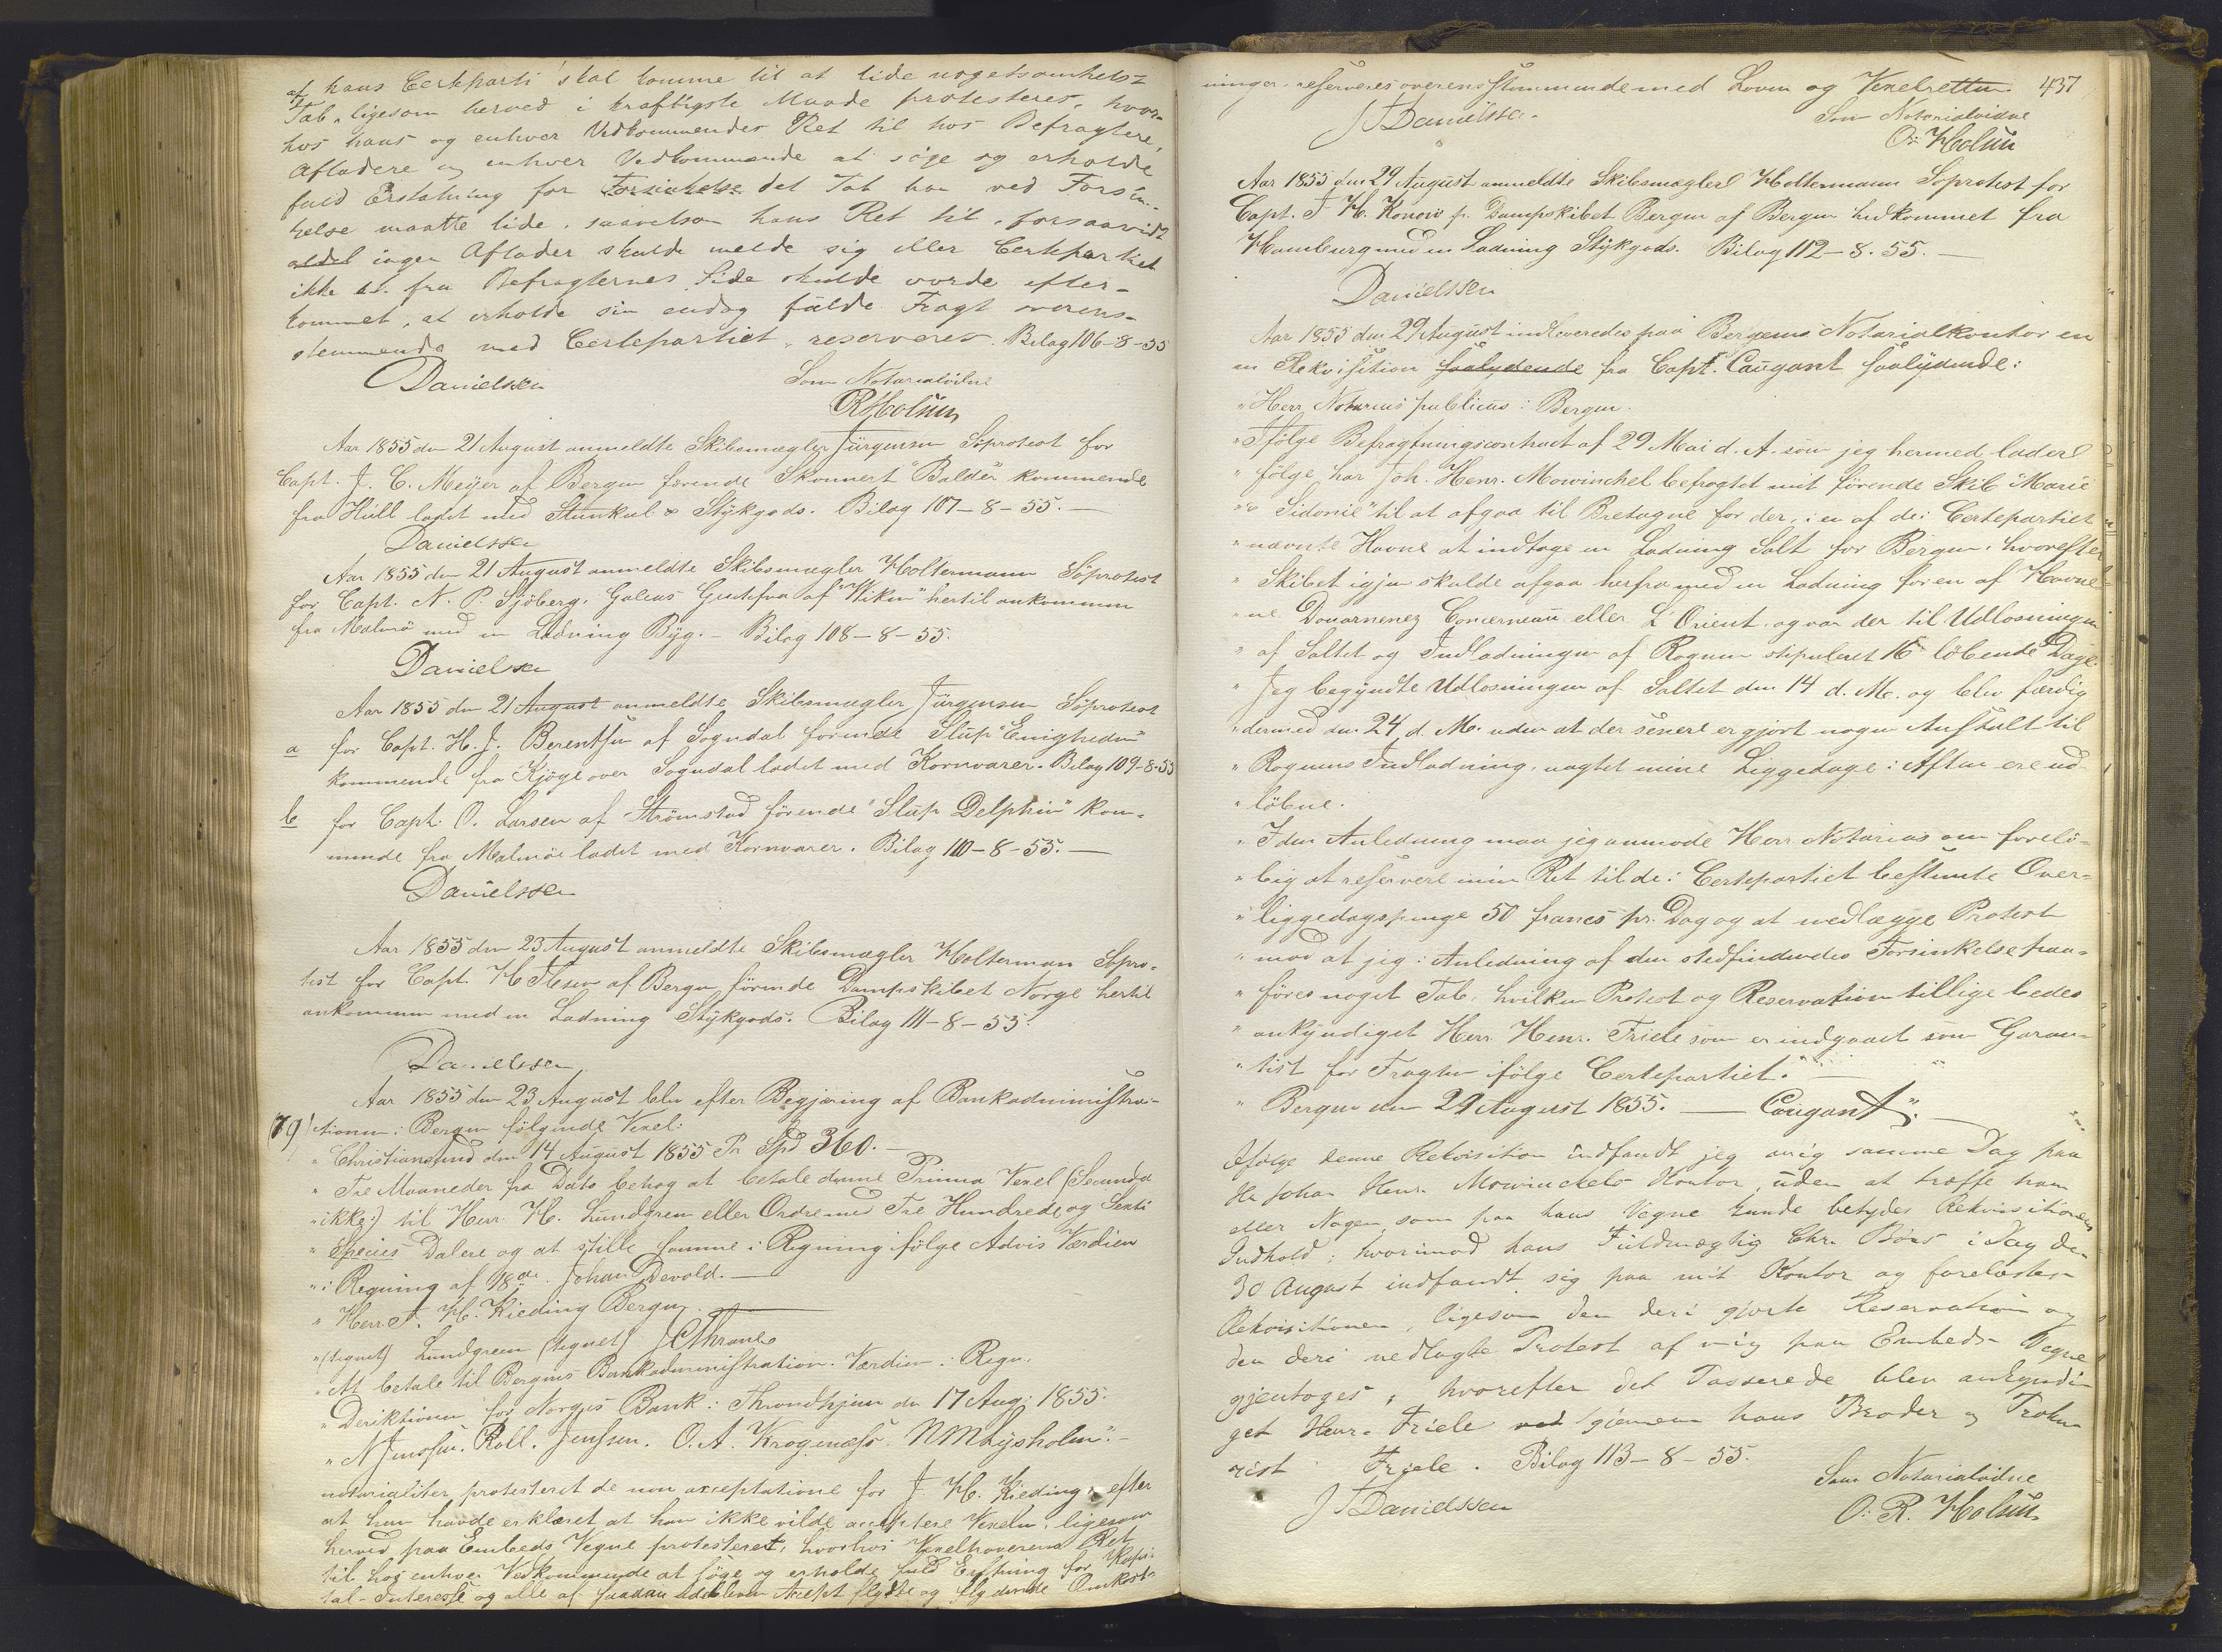 af hans Certeparti skal komme til at lide nogetsomhelst
Tab, ligesom herved i kraftigste Maade protesteres, hvor-
hos hans og enhver Vedkommendes Ret til hos Befragtere,
Afladere og enhver Vedkommende at söge og erholde
fuld Erstatning for Forsinkelse det Tab han ved Forsin-
kelse maatte lide, saavelsom hans Ret til, forsaavidt
ingen Aflader skulde melde sig eller Certepartiet
ikke fra Befragternes Side skulde vorde efter-
kommet, at erholde sin endog fulde Fragt overens-
stemmende med Certepartiet, reserveres. Bilag 106-8-55
Danielssen
Som Notarialvidne
O R Holum
Aar 1855 den 21 August anmeldte Skibsmægler Jürgensen Söprotest for
Capt. J. C. Meyer af Bergen förende Skonnert "Balder" kommende
fra Hull ladet med Stenkul & Stykgods. Bilag 107-8-55.
Danielssen
Aar 1855 den 21 August anmeldte Skibsmægler Holtermann Söprotest
for Capt. N. P. Sjöberg, Galeas Gustafva af "Wiken" hertil ankommen
fra Malmö med en Ladning Byg. - Bilag 108-8-55.
Danielssen
Aar 1855 den 21 August anmeldte Skibsmægler Jürgensen Söprotest
a for Capt. H. J. Berentsen af Sogndal förende Slup "Enigheden"
kommende fra Kjöge over Sogndal ladet med Kornvarer. Bilag 109-8-55
b for Capt. O. Larsen af Strömstad förende "Slup Delphin" kom-
mende fra Malmöe ladet med Kornvarer. Bilag 110-8-55.
Danielssen
Aar 1855 den 23 August anmeldte Skibsmægler Holterman Söpro-
test for Capt. H af Bergen förende Dampskibet Norge hertil
ankommen med en Ladning Stykgods. Bilag 111-8-55.
Danielssen
Aar 1855 den 23 August blev efter Begjæring af Bankadministra-
79) tionen i Bergen fölgende Vexel:
"Christiansund den 14 August 1855 Pr Spd 360.
"Tre Maaneder fra Dato behag at betale denne Prima Vexel (Secunda
"ikke) til Herr H. Lundgreen eller Ordre med Tre Hundrede og Sexti
"Species Dalere og at stille samme i Regning ifölge Advis Værdien
"i Regning af Johan Devold.
"Herr J. H. Kieding Bergen
"(tegnet) Lundgreen (tegnet) J C Thrane
"At betale til Bergens Bankadministration. Værdien i Regn.
"Direktionen for Norges Bank i Throndhjem den 17 Aug: 1855.
"N Jenssen. Roll. Jenssen. O. A. Krogness. N M Lysholm".
notarialiter protesteret de non acceptatione for J H. Kieding, efter
at han havde erklæret at han ikke vilde acceptere Vexelen, ligesom
herved paa Embeds Vegne protesteret, hvorhos Vexelhaverens Ret
til hos enhver Vedkommende at söge og erholde fuld Erstning for Kapi-
tal-Interesse og alle af saadan udebleven Accept flydte og flydende Omkost-
ninger, reserveres overensstemmende med Loven og Vexelretten. 437
J Danielssen.
Som Notarialvidne
O. Holum
Aar 1855 den 29 August anmeldte Skibsmægler Holtermann Söprotest for
Capt. F. W. Konow fr. Dampskibet Bergen af Bergen hidkommet fra
Hamburg med en Ladning Stykgods. Bilag 112-8.55.
Danielssen
Aar 1855 den 29 August indleveredes paa Bergens Notarialkontor en
en Rekvisition saalydende fra Capt. Caugant saalydende:
"Herr Notarius publicus i Bergen.
"Ifölge Befragtningscontract af 29 Mai d. A. som jeg hermed lader
"fölge har Joh. Henr. Mowinckel befragtet mit förende Skib "Marie
"" Sidonie" til at afgaa til Bretagne for der, i en af de i Certepartiet
"nævnte Havne at indtage en Ladning Salt for Bergen, hvorefter
"Skibet igjen skulde afgaa herfra med en Ladning for en af Havne-
"ne Douarnenez Concerneau eller L'Orient, og var der til Udlosningen
"af Saltet og Indladningen af Rognen stipuleret 16 löbende Dage.
"Jeg begyndte Udlosningen af Saltet den 14 d. M. og blev færdig
"dermed den 24 d. M. uden at der senere er gjort nogen Anstalt til
"Rognens Indladning, uagtet mine Liggedage i Aften ere ud-
"löbne.
"I den Anledning maa jeg anmode Herr Notarius om forelö-
"big at reservere min Ret til de i Certepartiet bestemte Over-
"liggedagspenge 50 francs pr. Dag og at nedlægge Protest
"mod at jeg i Anledning af den stedfindendes Forsinkelse paa-
"föres noget Tab, hvilken Protest og Reservation tillige bedes
"ankyndiget Herr Henr. Friele som er indgaaet som Garan-
"tist for Fragten ifölge Certepartiet.
"Bergen den 29 August 1855. Caugant".
Ifölge denne Rekvisition indfandt jeg mig samme Dag paa
Hr Johan Henr. Mowinckels Kontor, uden at træffe ham
eller Nogen, som paa hans Vegne kunde betydes Rekvisitionens
Indhold; hvorimod hans Fuldmægtig Chr. Börs i Dag den
30 August indfandt sig paa mit Kontor og forelæstes
Rekvisitionen, ligesom den deri gjorte Reservation og
den deri nedlagte Protest af mig paa Embeds Vegne
gjentoges, hvorefter det Passerede blev ankyndi-
get Henr. Friele ved gjennem hans Broder og Proku-
rist Friele. Bilag 113-8-55.
J Danielssen
Som Notarialvidne
O. R. Holum